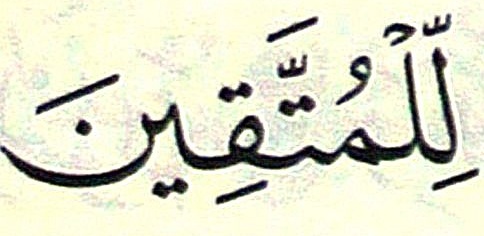 لِّلۡمُتَّقِينَ